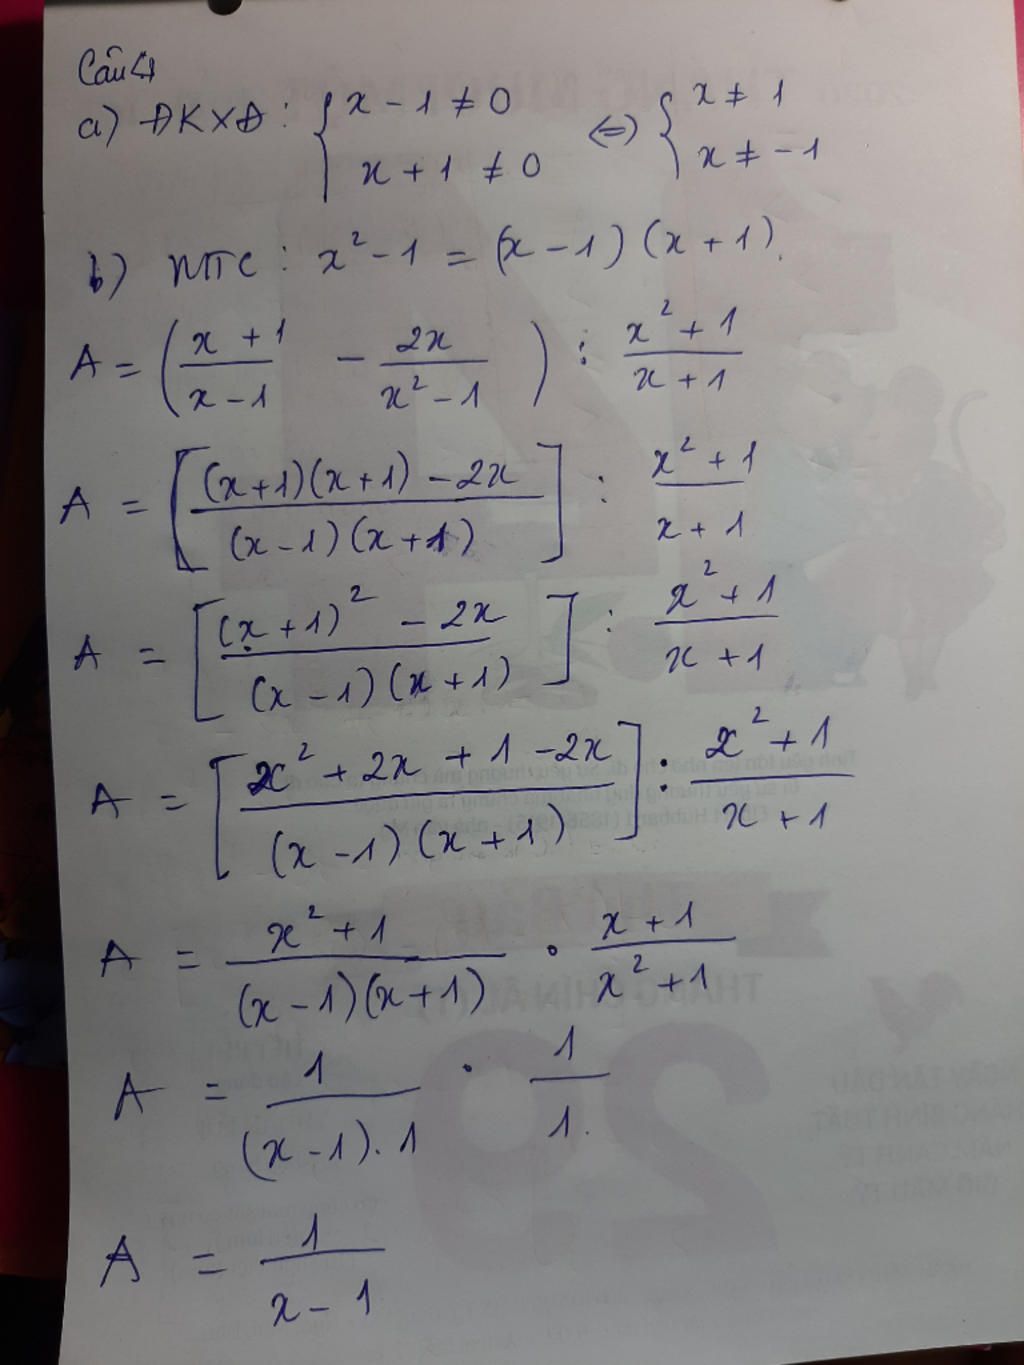 Câu 4
a) ĐKXĐ: { x - 1 ≠ 0 <=> { x ≠ 1
x + 1 ≠ 0 x ≠ -1
b) MTC: x² - 1 = (x - 1)(x + 1).
A = ( (x + 1)/(x - 1) - 2x/(x² - 1) ) : (x² + 1)/(x + 1)
A = [ ((x+1)(x+1) - 2x)/((x-1)(x+1)) ] : (x² + 1)/(x + 1)
A = [ ((x+1)² - 2x)/((x-1)(x+1)) ] : (x² + 1)/(x + 1)
A = [ (x² + 2x + 1 - 2x)/((x-1)(x+1)) ] : (x² + 1)/(x + 1)
A = (x² + 1)/((x-1)(x+1)) . (x + 1)/(x² + 1)
A = 1/((x-1).1) . 1/1.
A = 1/(x - 1)